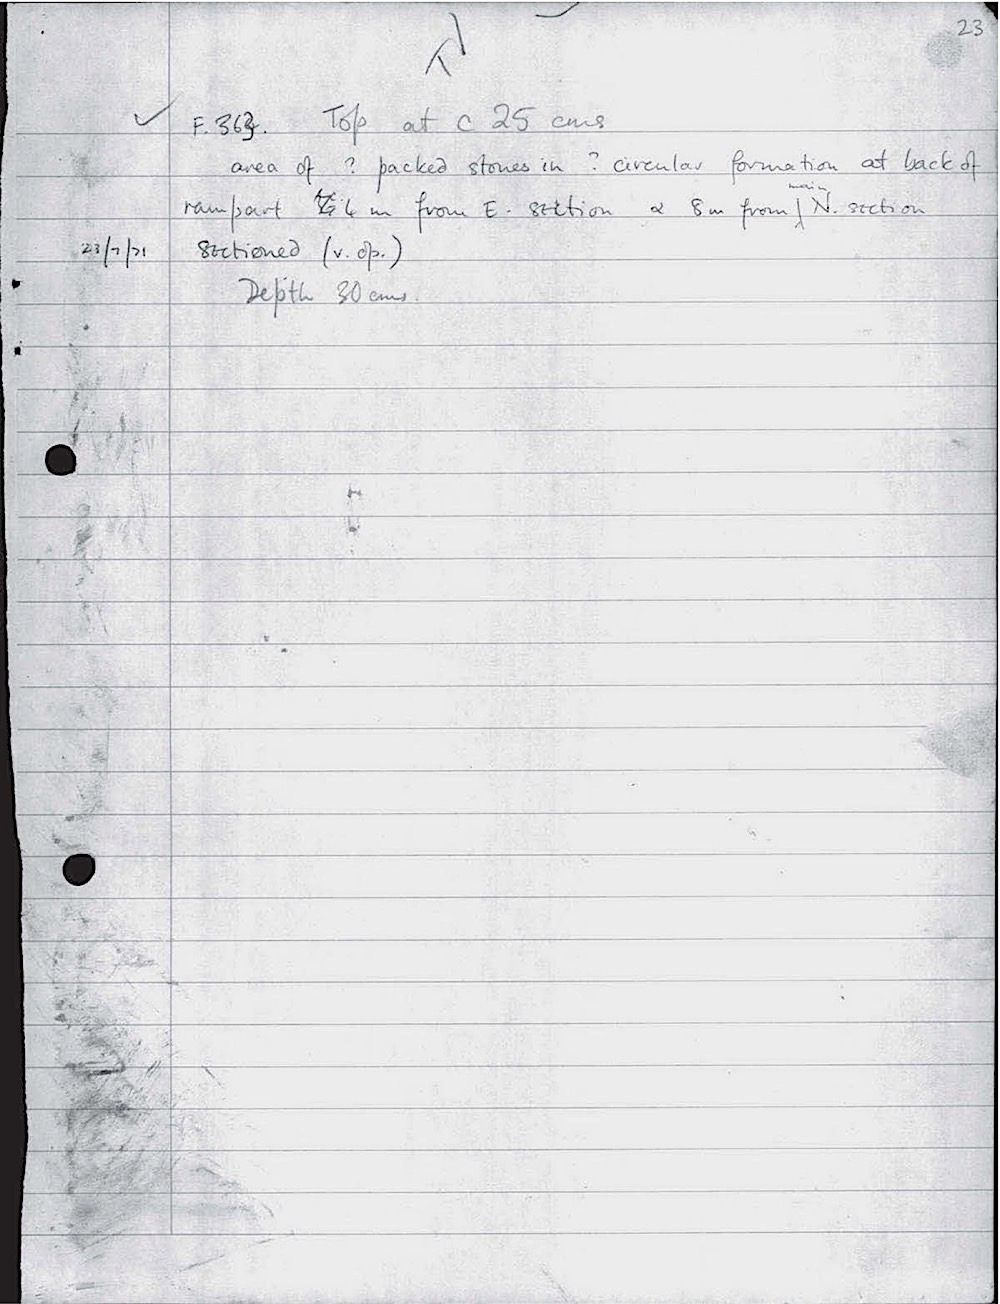 23
✓ F. 363. Top at c 25 cms
area of ? packed stones in ? circular formation at back of
rampart 4 m from E. section & 8m from main N. section
23/7/71 Sectioned (v. op.)
Depth 30 cms.